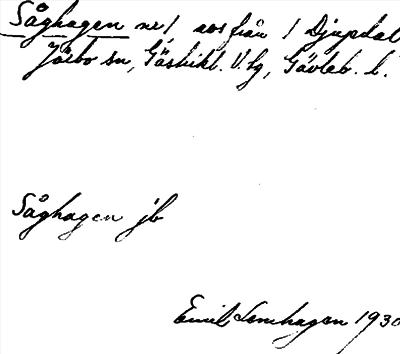 Såghagen nr 1, avs från 1 Djupdal
Järbo sn, Gästrikl. V. tg, Gävleb. l.
Såghagen jb
Emil Lenhagen 1930